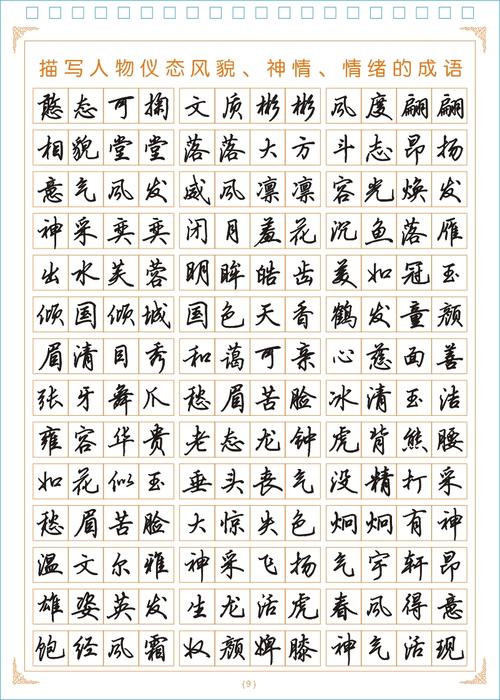 描写人物仪态风貌、神情、情绪的成语
憨态可掬 文质彬彬 风度翩翩
相貌堂堂 落落大方 斗志昂扬
意气风发 威风凛凛 容光焕发
神采奕奕 闭月羞花 沉鱼落雁
出水芙蓉 明眸皓齿 美如冠玉
倾国倾城 国色天香 鹤发童颜
眉清目秀 和蔼可亲 心慈面善
张牙舞爪 愁眉苦脸 冰清玉洁
雍容华贵 老态龙钟 虎背熊腰
如花似玉 垂头丧气 没精打采
愁眉苦脸 大惊失色 炯炯有神
温文尔雅 神采飞扬 气宇轩昂
雄姿英发 生龙活虎 春风得意
饱经风霜 奴颜婢膝 神气活现
(9)